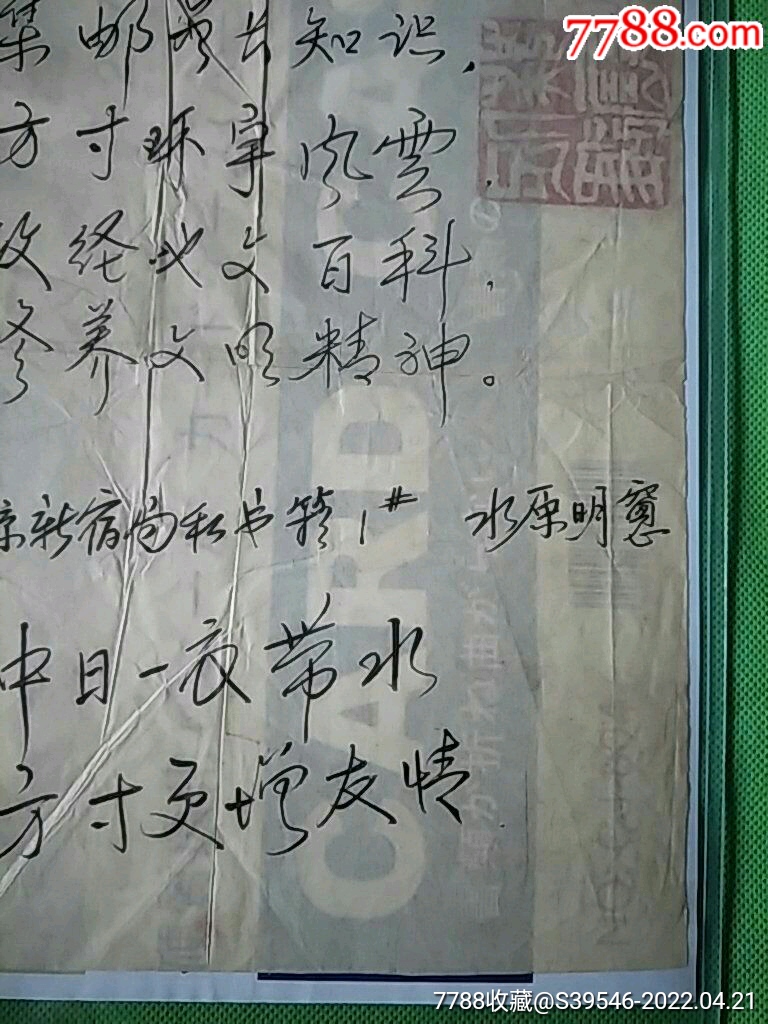 7788.com
集邮增长知识，
方寸环宇风云
政经史文百科，
修养文明精神。
京新宿局私书箱1# 水原明窗
中日一衣带水
方寸更增友情
CARD
7788收藏@S39546-2022.04.21